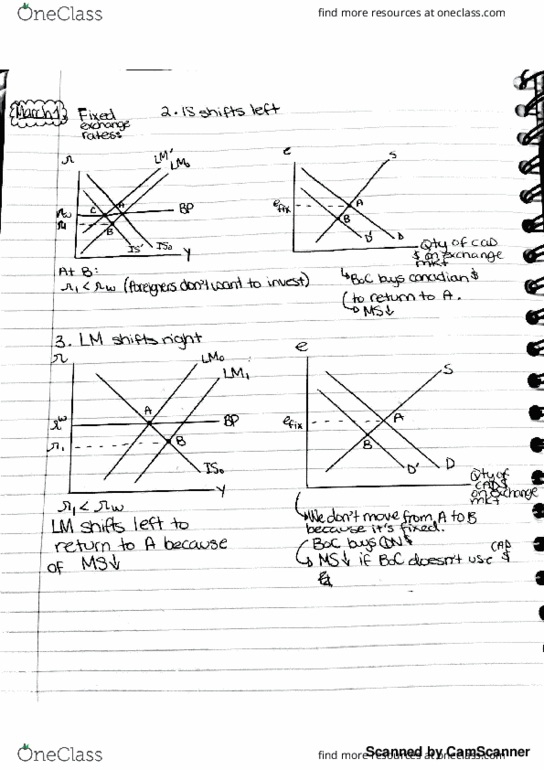 OneClass
find more resources at oneclass.com
March 1
Fixed exchange ratess
2. IS shifts left
r
LM'
LM₀
BP
C
A
B
r₁
IS'
IS₀
Y
e
S
e fix
A
B
D'
D
Qty of CAD
$ on exchange
mkt
At B:
r₁ < rw (foreigners don't want to invest)
BoC buys canadian $
to return to A.
MS↓
3. LM shifts right
r
LM₀
LM₁
A
rw
BP
B
r₁
IS₀
Y
e
S
e fix
A
B
D'
D
Qty of
CAD$
on exchange
mkt
r₁ < rw
LM shifts left to
return to A because
of MS↓
We don't move from A to B
because it's fixed.
BoC buys CDN$
MS↓ if BoC doesn't use CAD $
Scanned by CamScanner
OneClass
find more resources at oneclass.com